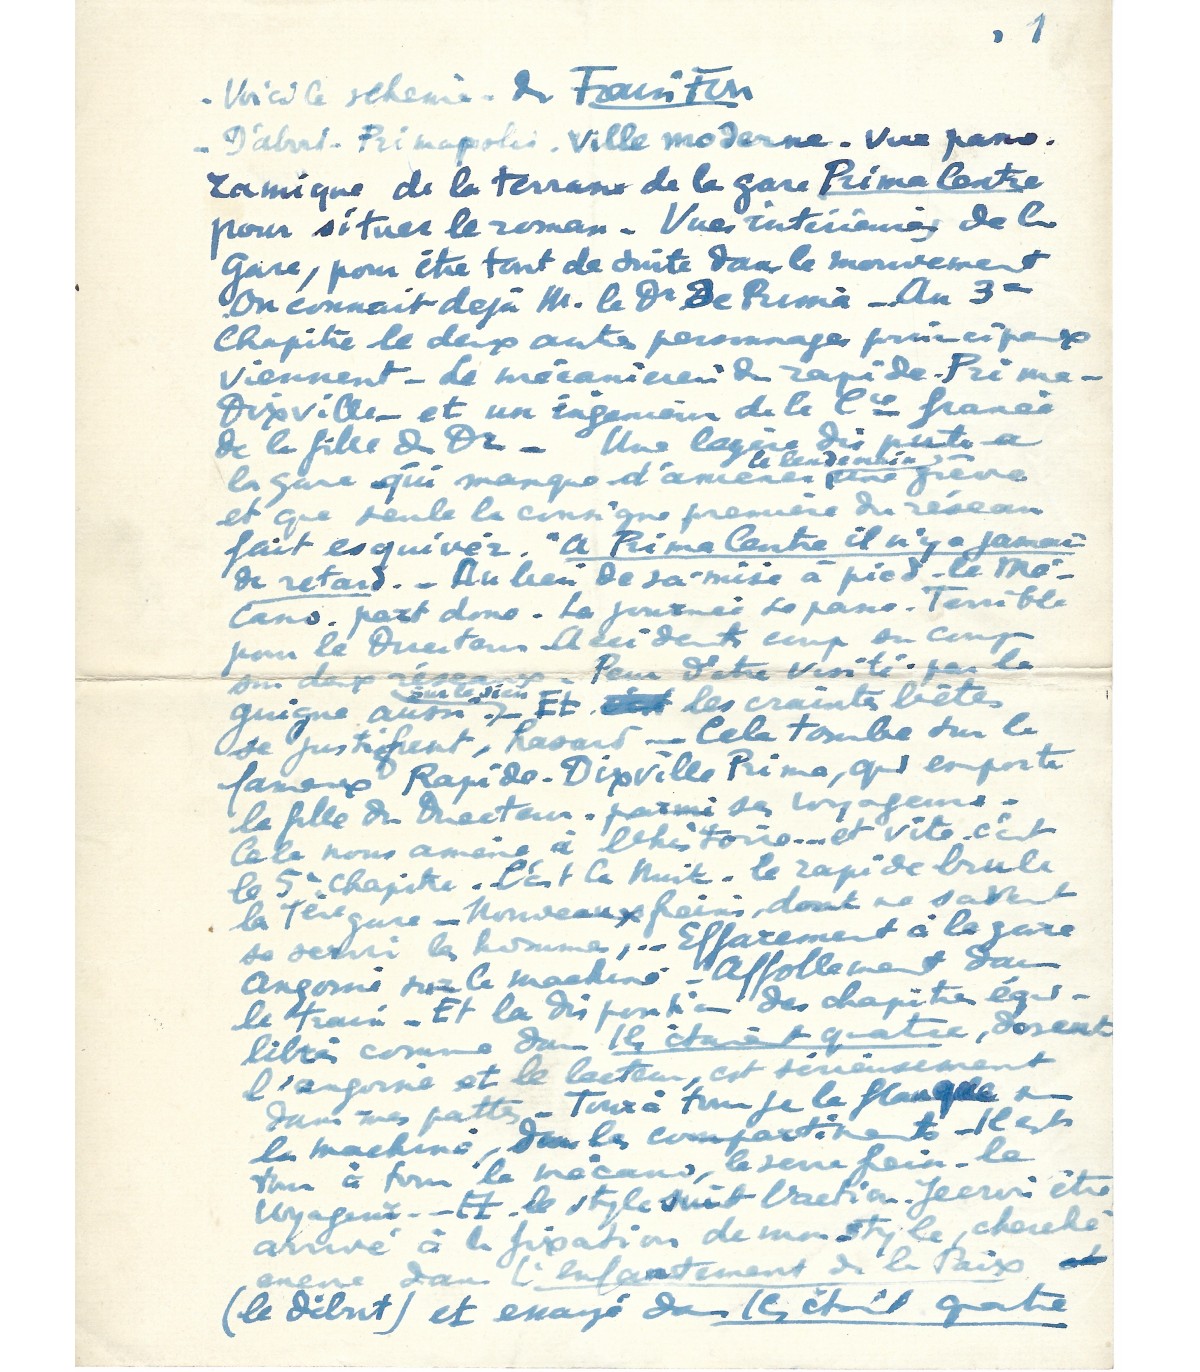 1
- Voici le schema - du Train Fou
- D'abord - Primapolis. Ville moderne. Vue pano-
ramique de la terrasse de la gare Prima Centre
pour situer le roman - Vues intérieures de la
Gare, pour être tout de suite dans le mouvement
On connait dejà M. le Dr De Prima - Au 3me
Chapitre le deux autres personnages principaux
viennent - Le mécanicien du rapide - Prima -
Dixville - et un ingenieur de la Cie fiancé
de la fille du Dr - Une legère dispute a
le lendemain
la gare qui manque d'amener une grève
et que seule la consigne première du réseau
fait esquiver. "A Prima Centre il n'y a jamais
de retard. - Au lieu de sa mise à pied - le Mé-
cano. part donc - La journée se passe. Terrible
pour le Directeur. Accidents coup sur coup
sur deux réseaux - Peur d'être visité par la
sur le sien
guigne aussi - Et les craintes bêtes
se justifient, hasard - Cela tombe sur le
fameux Rapide - Dixville Prima, qui emporte
la fille du Directeur - parmi ses voyageurs -
Cela nous amène à l'histoire... et vite c'est
le 5e chapitre. C'est la Nuit. le rapide brule
la 1ère gare - Nouveaux freins, dont ne savent
se servir les hommes,... Effarement à la gare
Angoisse sur la machine - Affollement dans
le train - Et la disposition des chapitres équi-
librés comme dans Ils étaient quatre, dosant
l'angoisse et le lecteur, est sérieusement
dans mes pattes - Tour à tour je le flanque sur
la machine, dans les compartiments - Il est
tour à tour le mécano, le serre frein - le
voyageur. - Et le style suit l'action. Je crois être
arrivé à la fixation de mon style, cherché
encore dans l'enfantement de la Paix
(le début) et essayé dans Ils était quatre